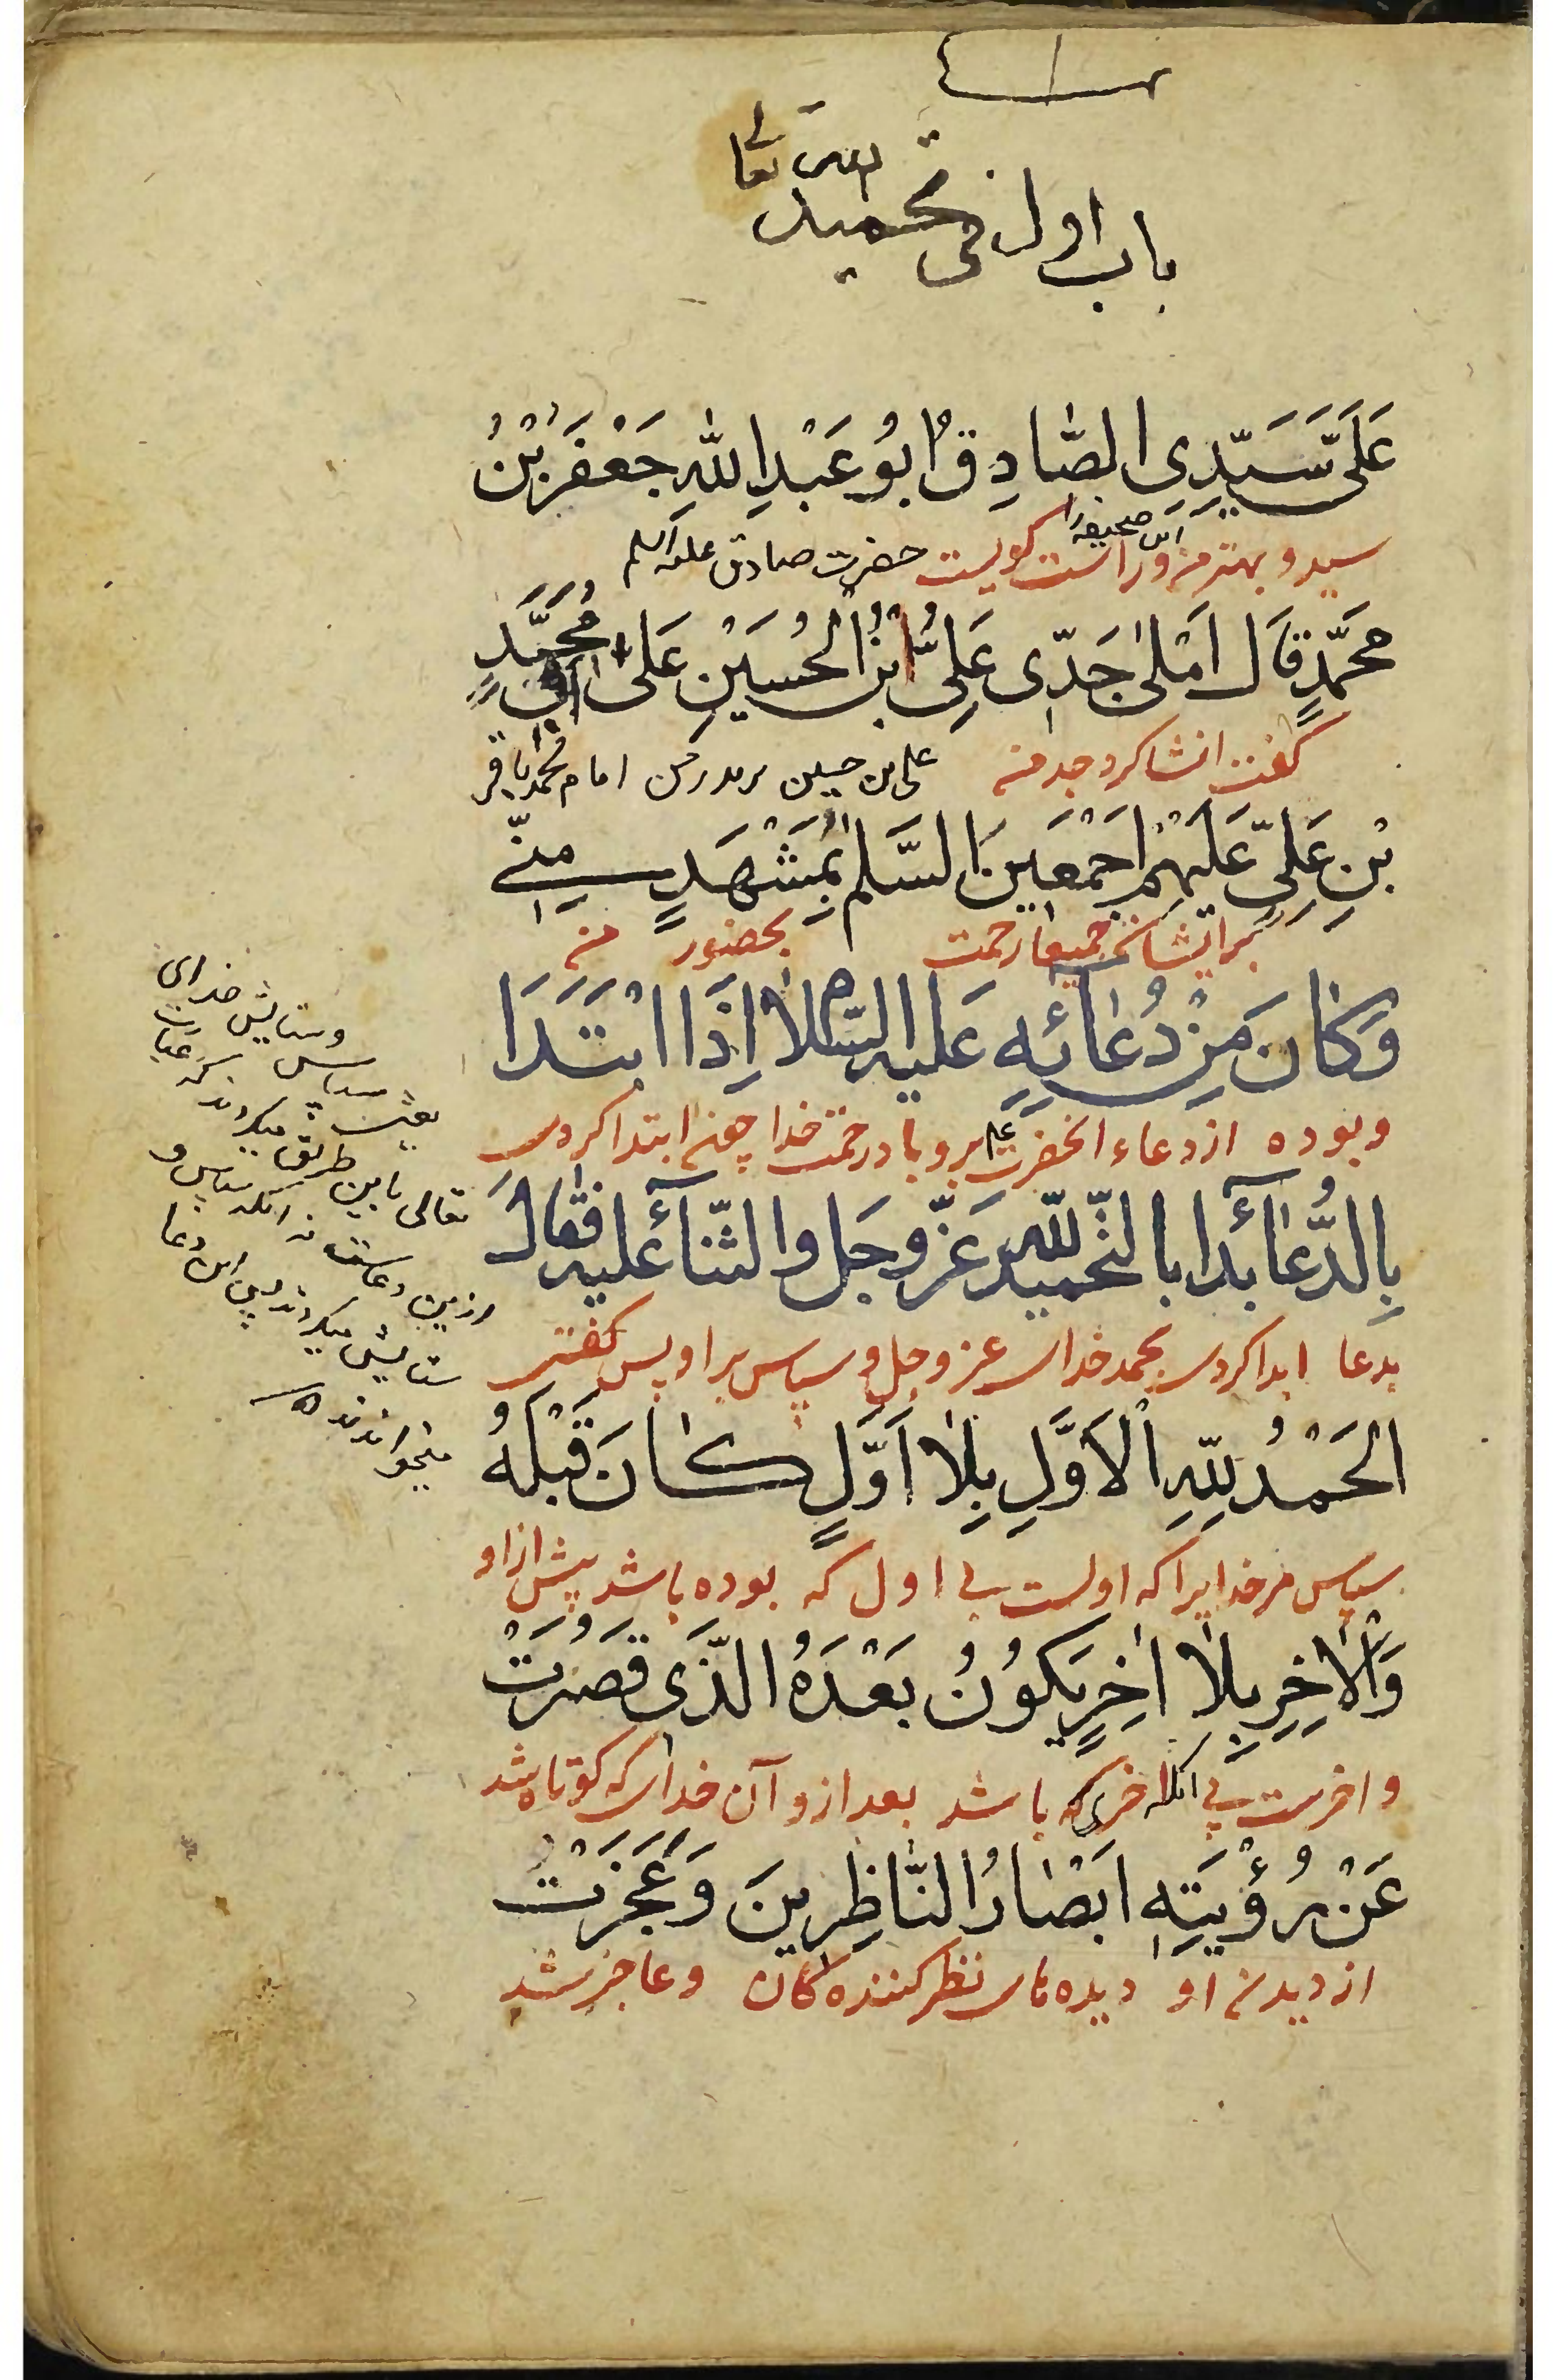 باب اول فی تحمید الله تعالی
عَلَیَّ سَیِّدِی الصَّادِقُ اَبُو عَبْدِ اللّٰهِ جَعْفَرُ بْنُ
سید و بهتر من و راست کویست این صحیفه را حضرت صادق علیه السلم
مُحَمَّدٍ قَالَ اَمْلیٰ جَدّی عَلِیُّ ابْنُ الْحُسَیْنِ عَلیٰ اَبِی مُحَمَّدِ
کفت انشا کرد جد من علی بن حسین بر پدر من امام محمد باقر
بْنِ عَلِیٍّ عَلَیْهِمْ اَجْمَعِینَ السَّلٰم بِمَشْهَدٍ مِنّی
بر ایشان جمیعا رحمت بحضور من
وَکٰانَ مِنْ دُعٰائِهِ عَلَیه السَّلام اِذَا ابْتَدَا
و بوده از دعاء انحضرت علیه برو بادرحمت خدا چون ابتدا کردی
بِالدُّعٰآءِ بدا بالتّحمید للّٰه عَزّ وجَل والثّنآء علیه فَقٰالَ
بدعا ابدا کردی بحمد خدای عز و جل و سپاس براو پس کفتی
اَلْحَمْدُ لِلّٰهِ الْاَوَّلِ بِلٰا اَوَّلٍ کٰانَ قَبْلَهُ
سپاس مر خدایرا که اولست بی اول که بوده باشد پیش از او
وَالْاٰخِرِ بِلٰا اٰخِرٍ یَکُوُنُ بَعْدَهُ الَّذَی قَصُرَتْ
و اخرست بی انکه اخری که باشد بعد ازو آن خدای که کوتاه شد
عَنْ رُؤْیَتِهِ اَبْصٰارُ النّٰاظِرِینَ وَعَجَزَتْ
از دیدن او دیده های نظر کننده کان و عاجز شد
و ستایش خدای
تعالی باین طریق میکردند که
ستایش میکردند پس این دعا
میخواندند